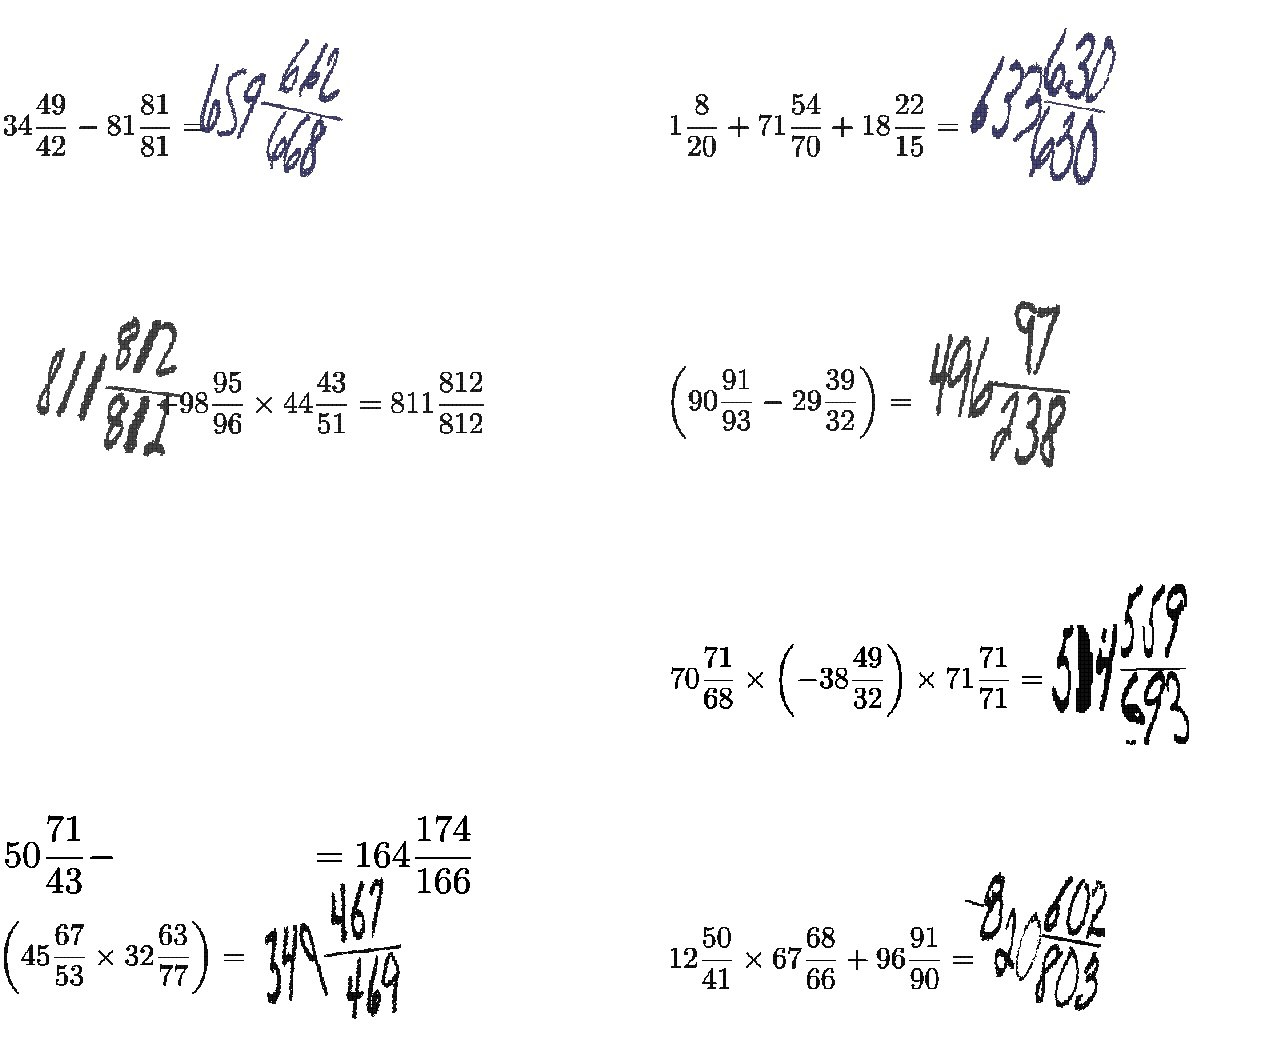 34 49/42 − 81 81/81 = 659 662/668
1 8/20 + 71 54/70 + 18 22/15 = 633 630/630
811 812/812 + 98 95/96 × 44 43/51 = 811 812/812
(90 91/93 − 29 39/32) = 496 97/238
70 71/68 × (−38 49/32) × 71 71/71 = 514 559/693
50 71/43 − = 164 174/166
(45 67/53 × 32 63/77) = 349 467/469
12 50/41 × 67 68/66 + 96 91/90 = −820 602/803